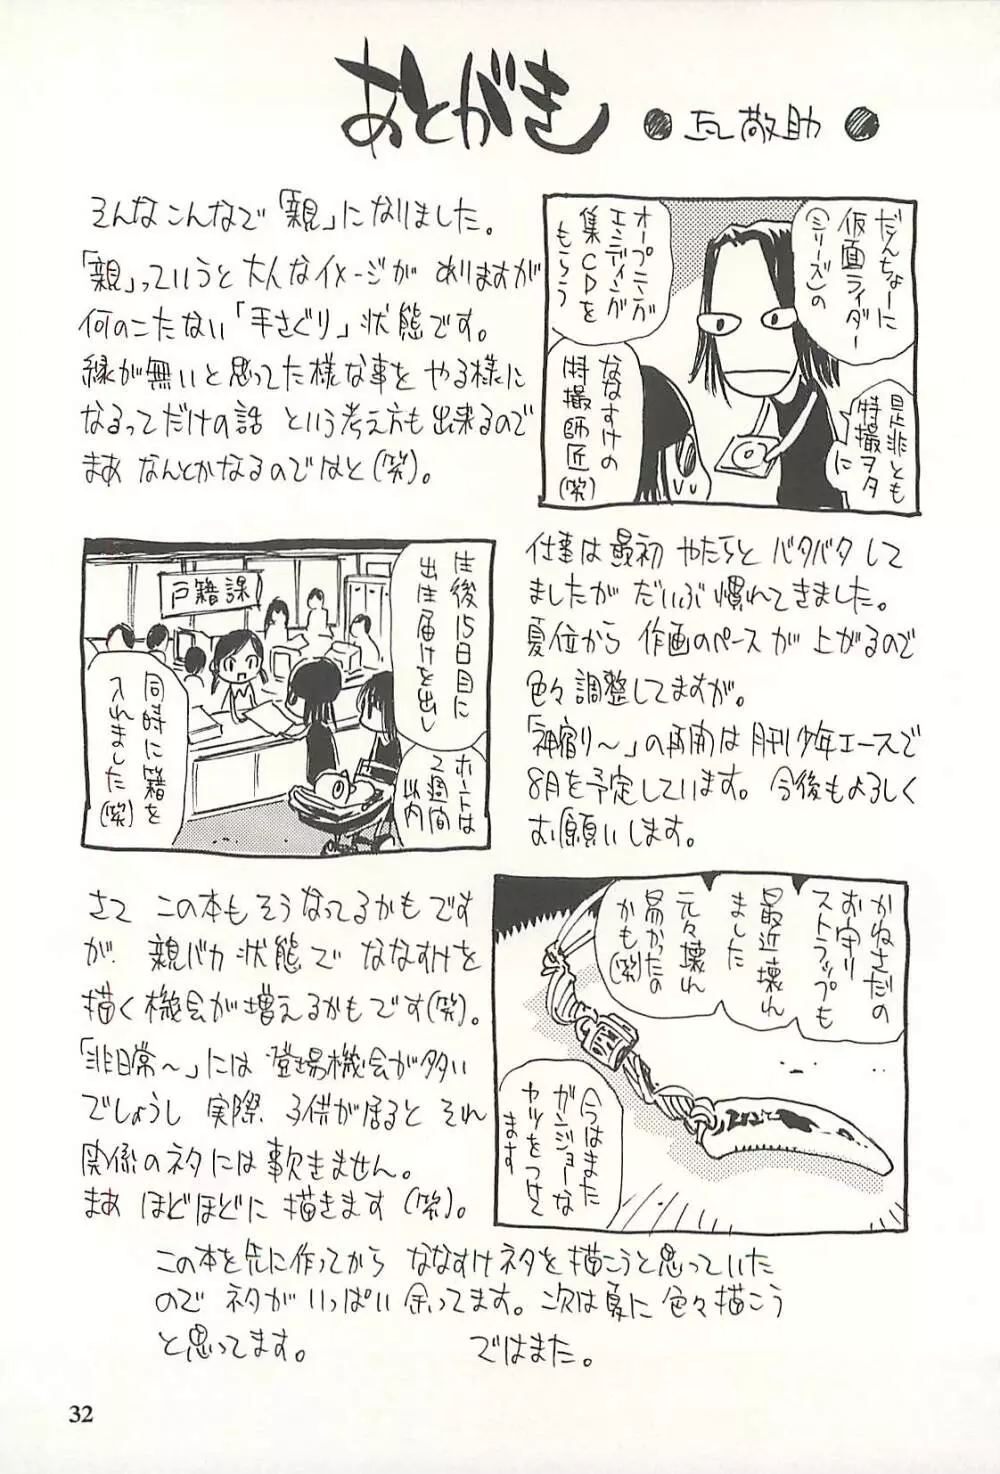 あとがき
●瓦敬助●
そんなこんなで「親」になりました。
「親」っていうと大人なイメージが ありますが
何のこたない「手さぐり」状態です。
縁が無いと思ってた様な事を やる様に
なるってだけの話 という考え方も出来るので
まあ なんとかなるのではと(笑)。
だんちょーに
仮面ライダー
(シリーズ)の
オープニング
エンディング
集CDを
もらう
是非とも
特撮ヲタ
に
ななすけの
特撮師匠
(笑)
戸籍課
生後15日目に
出生届けを出し
ホントは
2週間
以内
同時に籍を
入れました(笑)
仕事は最初 やたらと バタバタして
ましたが だいぶ慣れてきました。
夏位から 作画のペースが 上がるので
色々調整してますが。
「神宿り〜」の再開は 月刊少年エースで
8月を予定しています。今後もよろしく
お願いします。
さて この本もそうなってるかもです
が 親バカ状態で ななすけを
描く機会が増えるかもです(笑)。
「非日常〜」には 登場機会が多い
でしょうし 実際 子供が居ると それ
関係のネタには事欠きません。
まあ ほどほどに 描きます(笑)。
かねさだの
お守り
ストラップも
最近壊れ
ました
元々壊れ
易かったの
かも(笑)
今はまた
ガンジョーな
ヤツをつけて
ます
この本を先に作ってから ななすけネタを描こうと思っていた
ので ネタが いっぱい 余ってます。次は夏に 色々描こう
と思ってます。 ではまた。
32